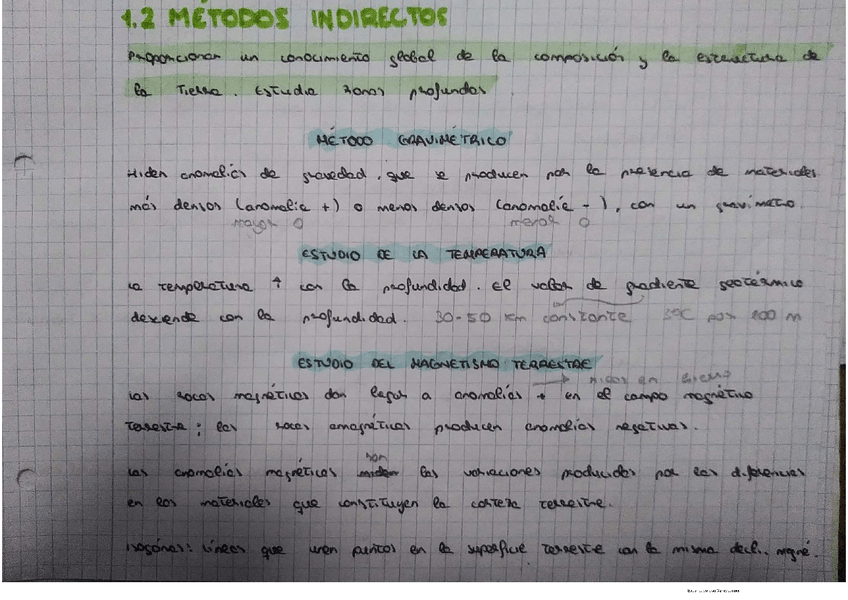 1.2 MÉTODOS INDIRECTOS
Proporcionan un conocimiento global de la composición y la estructura de
la Tierra. Estudia zonas profundas
MÉTODO GRAVIMÉTRICO
Miden anomalías de gravedad, que se producen por la presencia de materiales
más densos (anomalía +) o menos densos (anomalía -), con un gravímetro.
mayor 0 menor 0
ESTUDIO DE LA TEMPERATURA
La temperatura ↑ con la profundidad. El valor de gradiente geotérmico
desciende con la profundidad. 30-50 km constante 3ºC por 100 m
ESTUDIO DEL MAGNETISMO TERRESTRE
→ ricas en hierro
Las rocas magnéticas dan lugar a anomalías + en el campo magnético
terrestre; las rocas amagnéticas producen anomalías negativas.
son
Las anomalías magnéticas miden las variaciones producidas por las diferencias
en los materiales que constituyen la corteza terrestre.
Isogónas: líneas que unen puntos en la superficie terrestre con la misma decl. magné.